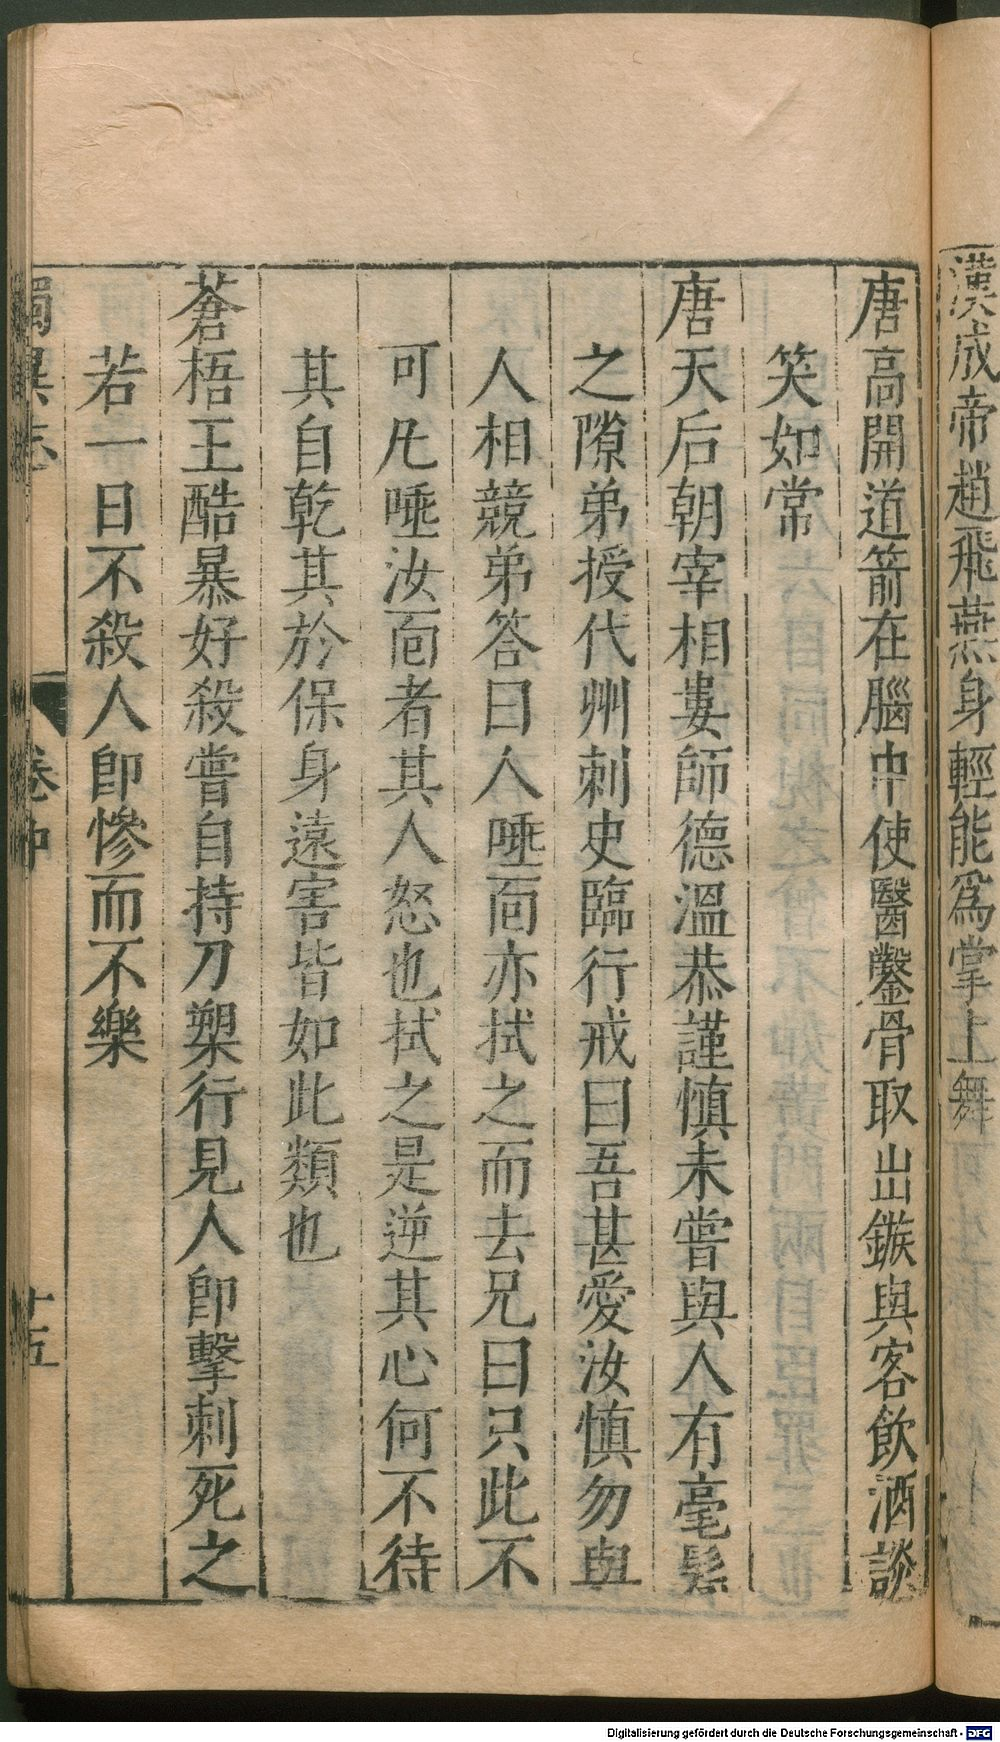 漢成帝趙飛燕身輕能爲掌上舞
唐高開道箭在腦中使醫鑿骨取出鏃與客飲酒談
笑如常
唐天后朝宰相婁師德溫恭謹慎未嘗與人有毫髮
之隙弟授代州刺史臨行戒曰吾甚愛汝慎勿與
人相競弟答曰人唾面亦拭之而去兄曰只此不
可凡唾汝面者其人怒也拭之是逆其心何不待
其自乾其於保身遠害皆如此類也
蒼梧王酷暴好殺嘗自持刀槊行見人卽擊刺死之
若一日不殺人卽慘而不樂
獨異志 卷中 十五
Digitalisierung gefördert durch die Deutsche Forschungsgemeinschaft - DFG